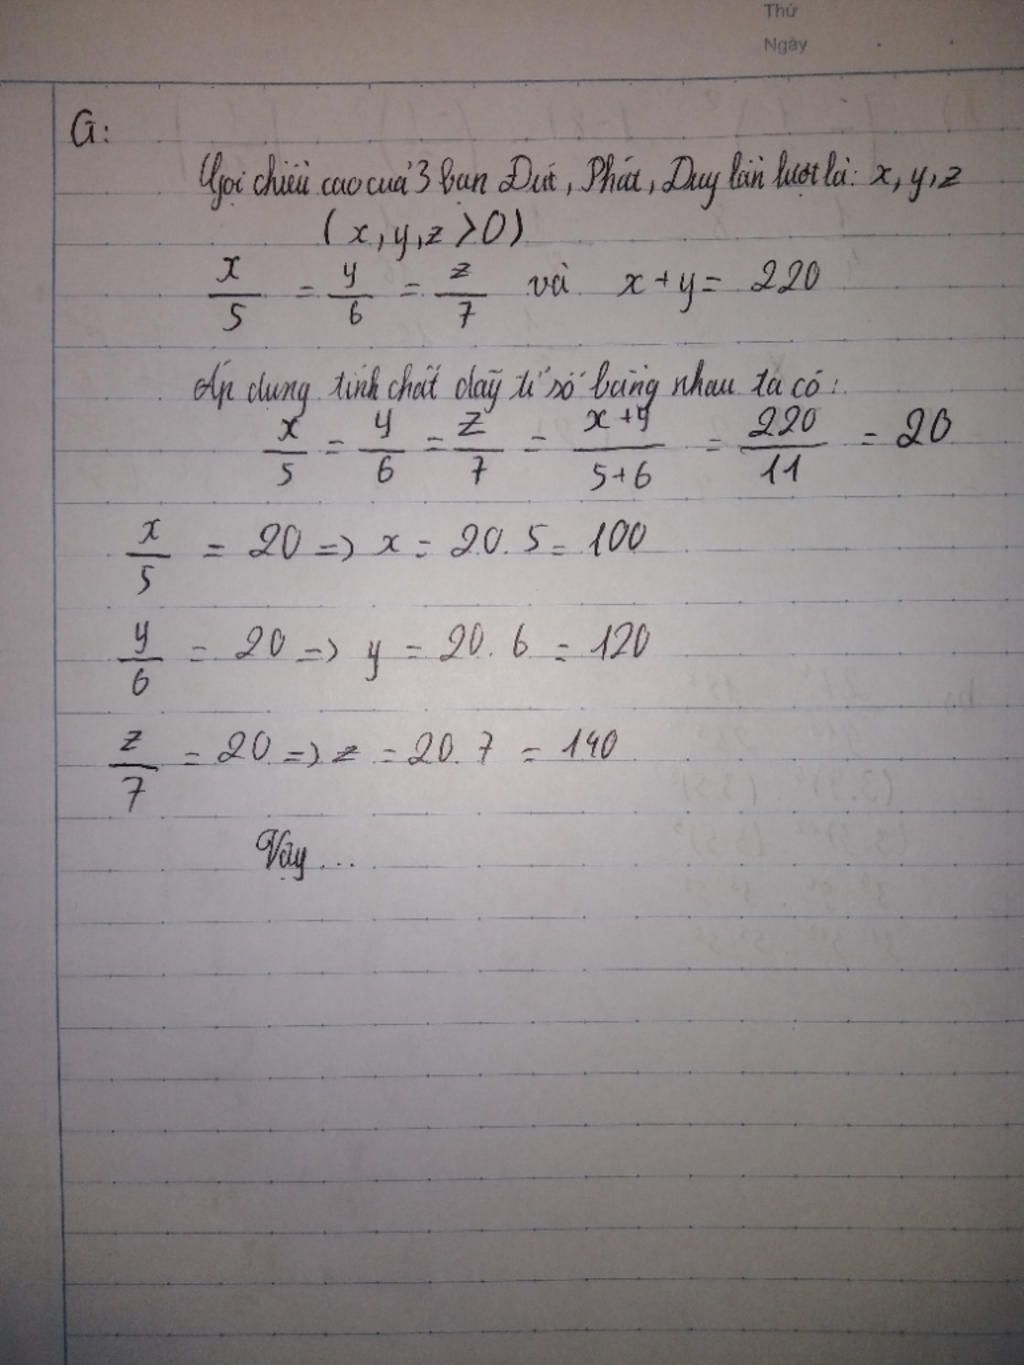 Thứ
Ngày
G:
Gọi chiều cao của 3 bạn Đức, Phát, Duy lần lượt là: x, y, z
(x, y, z > 0)
x/5 = y/6 = z/7 và x + y = 220
Áp dụng tính chất dãy tỉ số bằng nhau ta có:
x/5 = y/6 = z/7 = x+y/5+6 = 220/11 = 20
x/5 = 20 => x = 20.5 = 100
y/6 = 20 => y = 20.6 = 120
z/7 = 20 => z = 20.7 = 140
Vậy ...